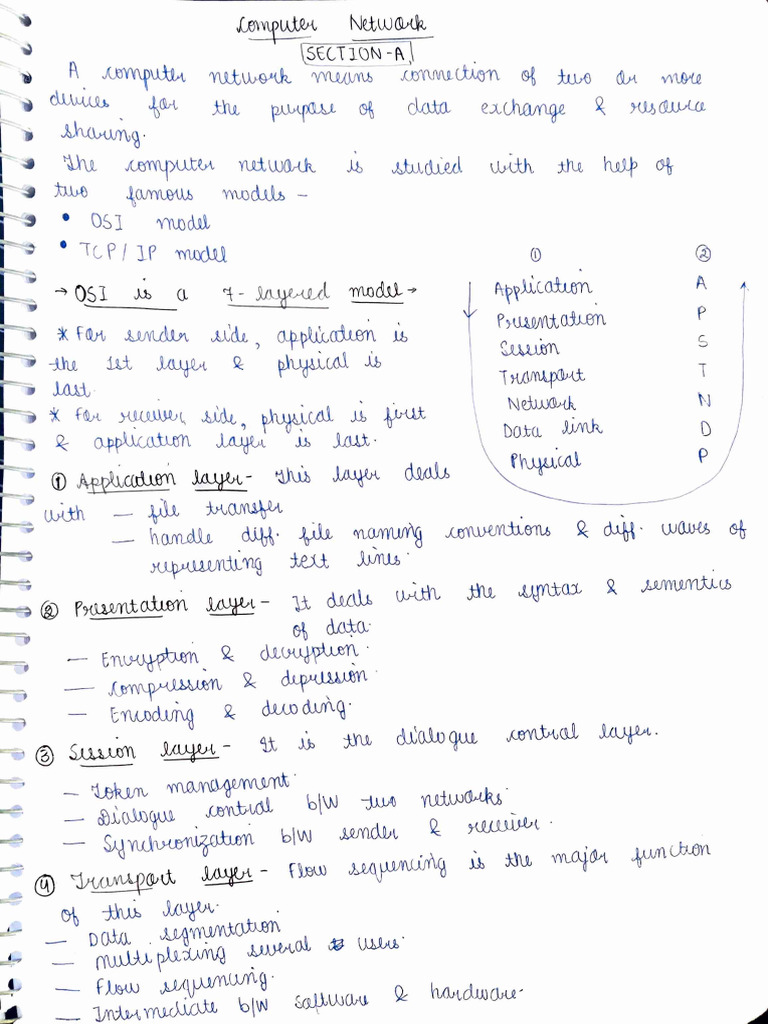 Computer Network
SECTION-A
A computer network means connection of two or more
devices for the purpose of data exchange & resource
sharing.
The computer network is studied with the help of
two famous models -
• OSI model
• TCP/IP model
→ OSI is a 7-layered model →
* For sender side, application is
the 1st layer & physical is
last.
* For receiver side, physical is first
& application layer is last.
① ②
Application A
Presentation P
Session S
Transport T
Network N
Data link D
Physical P
① Application layer - This layer deals
with — file transfer
— handle diff. file naming conventions & diff. waves of
representing text lines.
② Presentation layer - It deals with the syntax & sementics
of data.
— Encryption & decryption.
— Compression & depression.
— Encoding & decoding.
③ Session layer - It is the dialogue control layer.
— Token management.
— Dialogue control b/w two networks.
— Synchronization b/w sender & receiver.
④ Transport layer - Flow sequencing is the major function
of this layer.
— Data segmentation
— Multiplexing several users.
— Flow sequencing.
— Intermediate b/w software & hardware.